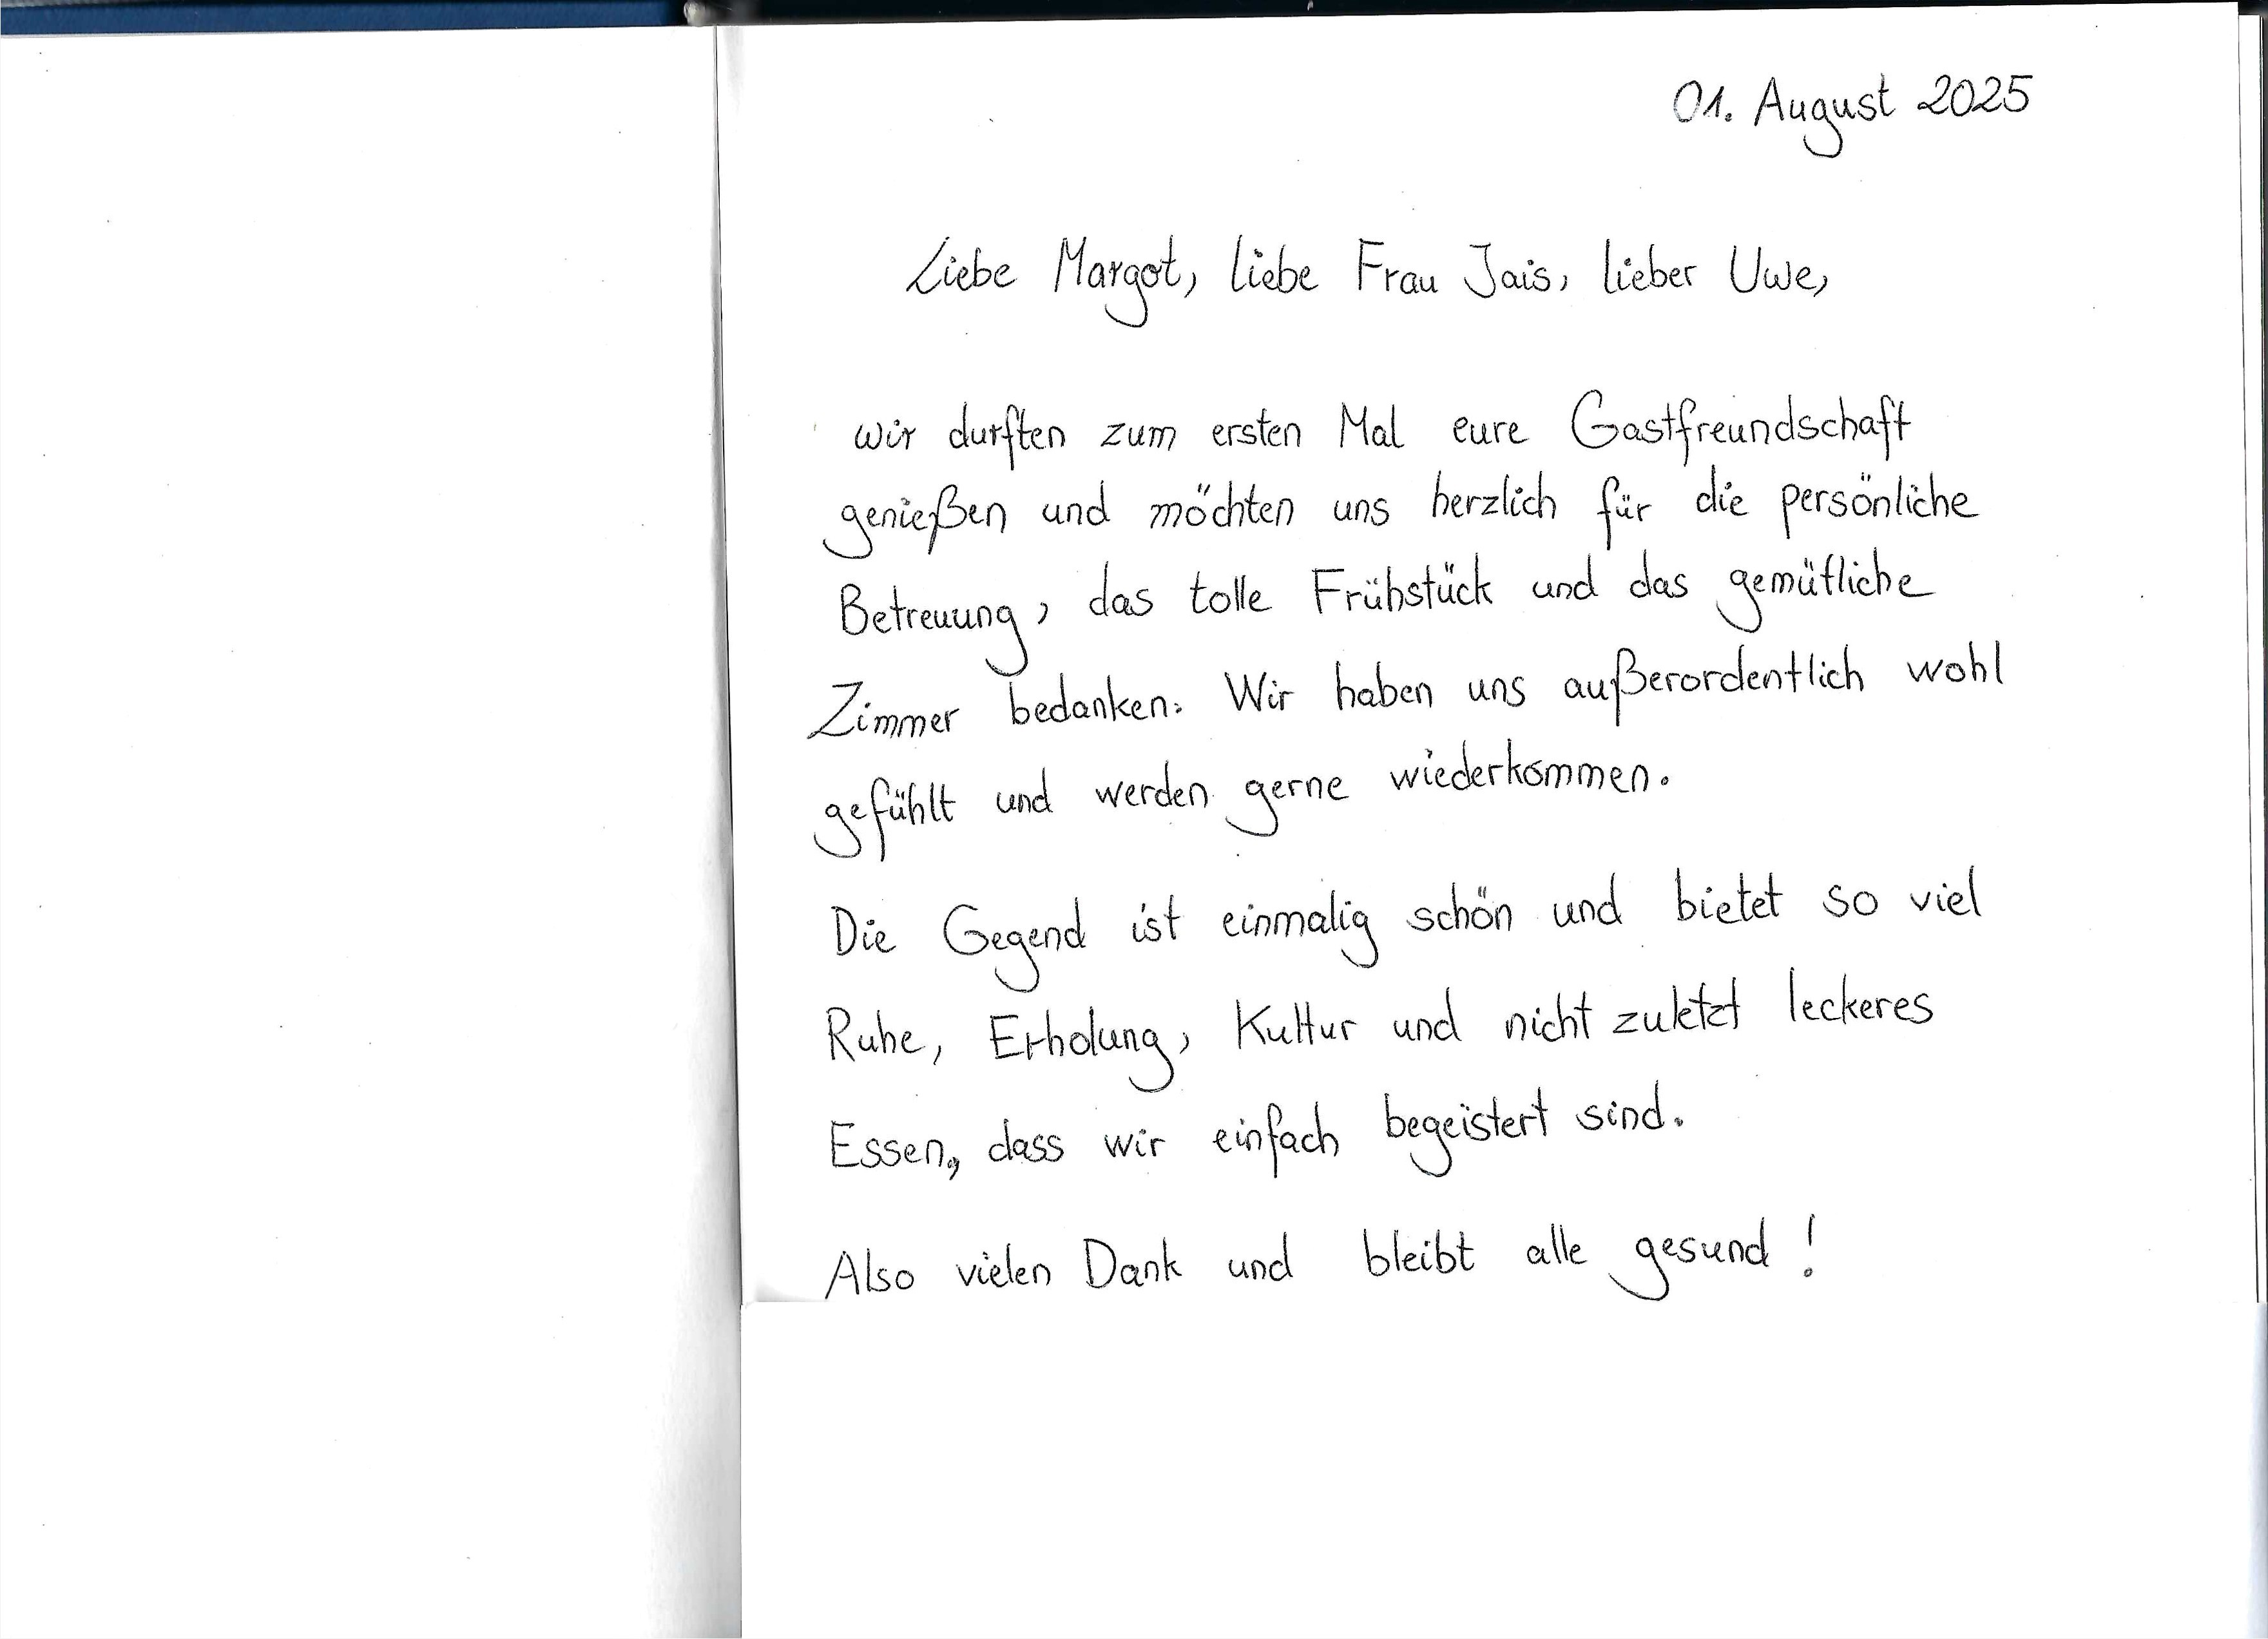 01. August 2025
Liebe Margot, liebe Frau Jais, lieber Uwe,
wir durften zum ersten Mal eure Gastfreundschaft
genießen und möchten uns herzlich für die persönliche
Betreuung, das tolle Frühstück und das gemütliche
Zimmer bedanken. Wir haben uns außerordentlich wohl
gefühlt und werden gerne wiederkommen.
Die Gegend ist einmalig schön und bietet so viel
Ruhe, Erholung, Kultur und nicht zuletzt leckeres
Essen, dass wir einfach begeistert sind.
Also vielen Dank und bleibt alle gesund!